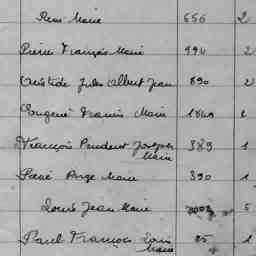 René Marie 656 2
Pierre François Marie 994 2
Aristide Jules Albert Jean 890 2
Eugène Francis Marie 1849 1
François Prudent Joseph Marie 389 1
René Ange Marie 390 1
Louis Jean Marie 5
Paul François Louis Marie 85 1